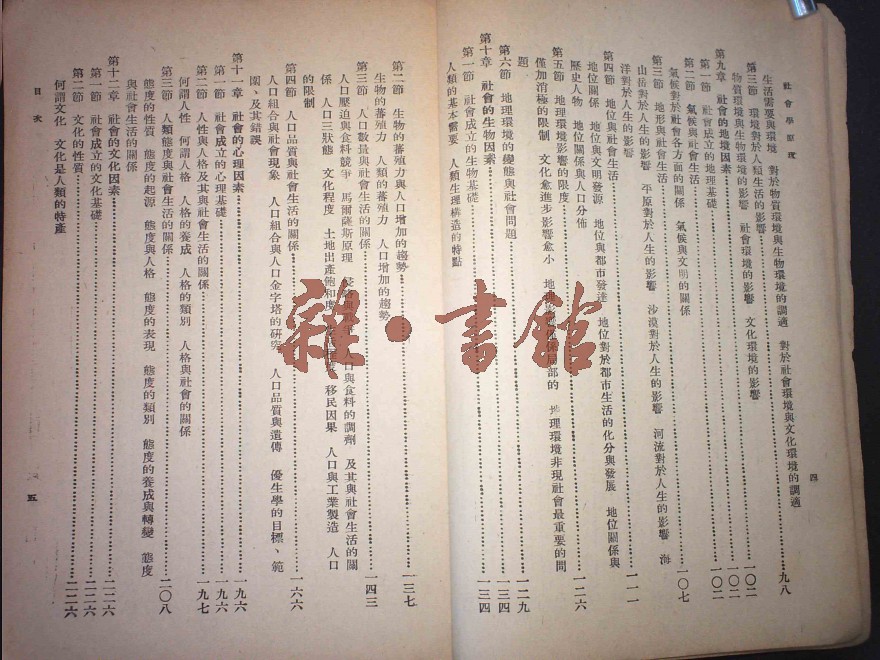 社會學原理 四
生活需要與環境 對於物質環境與生物環境的調適 對於社會環境與文化環境的調適
第三節 環境對於人類生活的影響……九八
物質環境與生物環境的影響 社會環境的影響 文化環境的影響
第九章 社會的地境因素……一〇二
第一節 社會成立的地理基礎……一〇二
第二節 氣候與社會生活……一〇二
氣候對於社會各方面的關係 氣候與文明的關係
第三節 地形與社會生活……一〇七
山岳對於人生的影響 平原對於人生的影響 沙漠對於人生的影響 河流對於人生的影響 海
洋對於人生的影響
第四節 地位與社會生活……一一一
地位關係 地位與文明發源 地位與都市發達 地位對於都市生活的化分與發展 地位關係與
歷史人物 地位關係與人口分佈
第五節 地理環境影響的限度……一二六
僅加消極的限制 文化愈進步影響愈小 地理影響係局部的 地理環境非現社會最重要的問
題
第六節 地理環境的變態與社會問題……一二九
第十章 社會的生物因素……一三四
第一節 社會成立的生物基礎……一三四
人類的基本需要 人類生理構造的特點
第二節 生物的蕃殖力與人口增加的趨勢……一三七
生物的蕃殖力 人類的蕃殖力 人口增加的趨勢
第三節 人口數量與社會生活的關係……一四三
人口壓迫與食料競爭 馬爾薩斯原理 人口與食料的調劑 及其與社會生活的關
係 人口三狀態 文化程度 土地出產飽和度 移民因果 人口與工業製造 人口
的限制
第四節 人口品質與社會生活的關係……一六六
人口組合與社會現象 人口組合與人口金字塔的研究 人口品質與遺傳 優生學的目標、範
圍、及其錯誤
第十一章 社會的心理因素……一九六
第一節 社會成立的心理基礎……一九六
第二節 人性與人格及其與社會生活的關係……一九七
何謂人性 何謂人格 人格的養成 人格的類別 人格與社會的關係
第三節 人類態度與社會生活的關係……二〇八
態度的性質 態度的起源 態度與人格 態度的表現 態度的類別 態度的養成與轉變 態度
與社會生活的關係
第十二章 社會的文化因素……二二六
第一節 社會成立的文化基礎……二二六
第二節 文化的性質……二二六
何謂文化 文化是人類的特產
目次 五
雜·書館